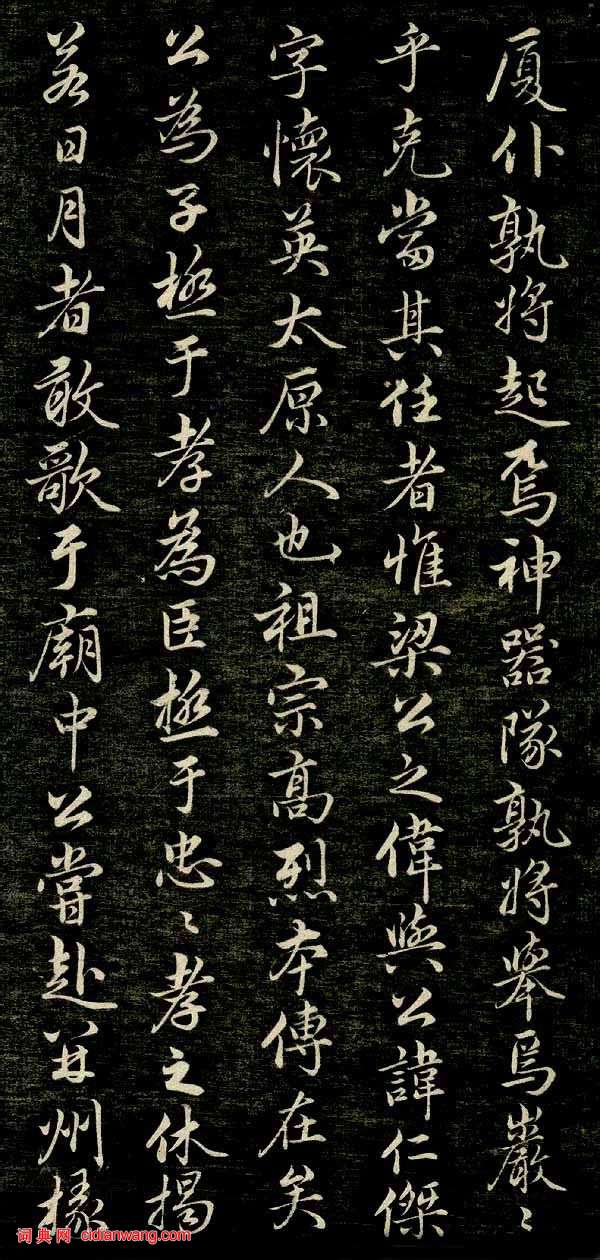 厦仆孰将起焉神器隊孰将舉焉巖〻
乎克當其任者惟梁公之偉與公諱仁傑
字懷英太原人也祖宗高烈本傳在矣
公為子極于孝為臣極于忠〻孝之休揭
若日月者敢歌于廟中公嘗赴并州掾
词典网 cidianwang.com